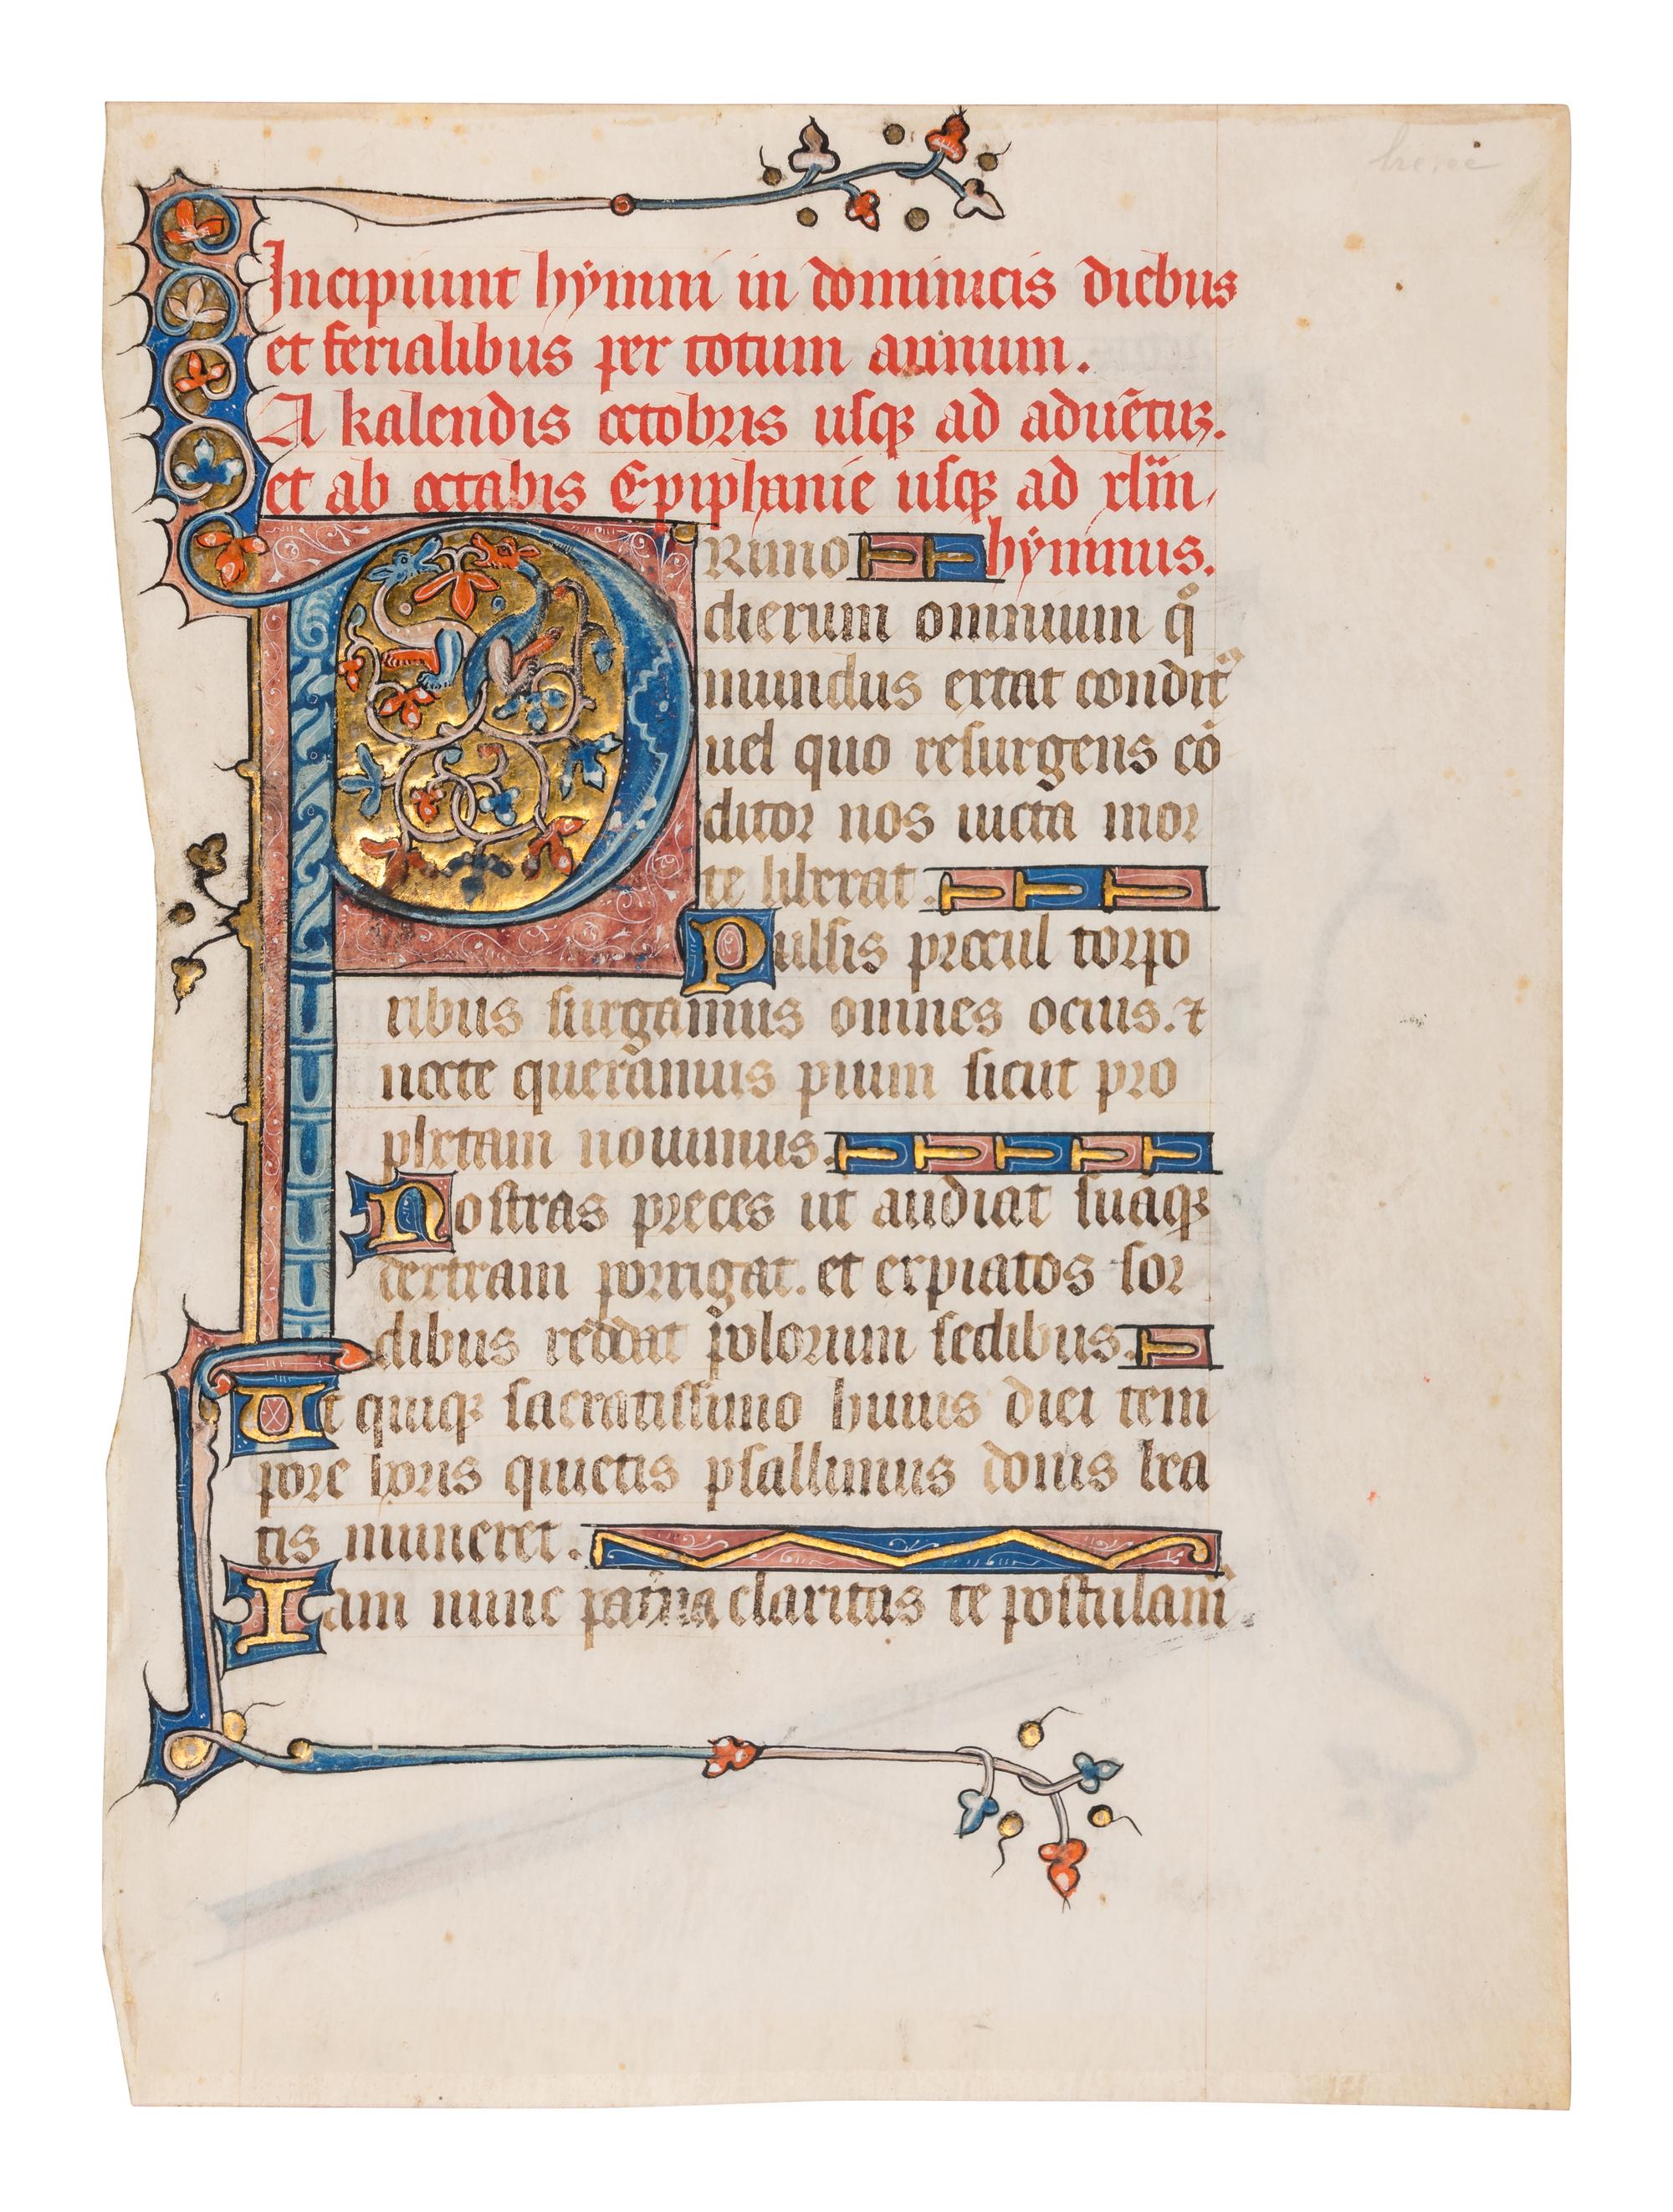 Incipiunt hÿmni in dominicis diebus
et ferialibus per totum annum.
A kalendis octobris usqꝫ ad aduētuꝫ.
et ab octabis Epiphanie usqꝫ ad xlm̄.
PRimo hÿmnus.
dierum omnium qͦ
mundus extat condit᷑
uel quo resurgens cō
ditor nos uicta mor
te liberat.
Pulsis procul torpo
ribus surgamus omnes ocius. ⁊
nocte queramus pium sicut pro
phetam nouimus.
Nostras preces ut audiat suāqꝫ
dextram porrigat. et expiatos sor
dibus reddat polorum sedibus.
Ut quiqꝫ sacratissimo huius diei tem
pore horis quietis psallimus donis bea
tis muneret.
Iam nunc pat̄na claritas te postulam᷒